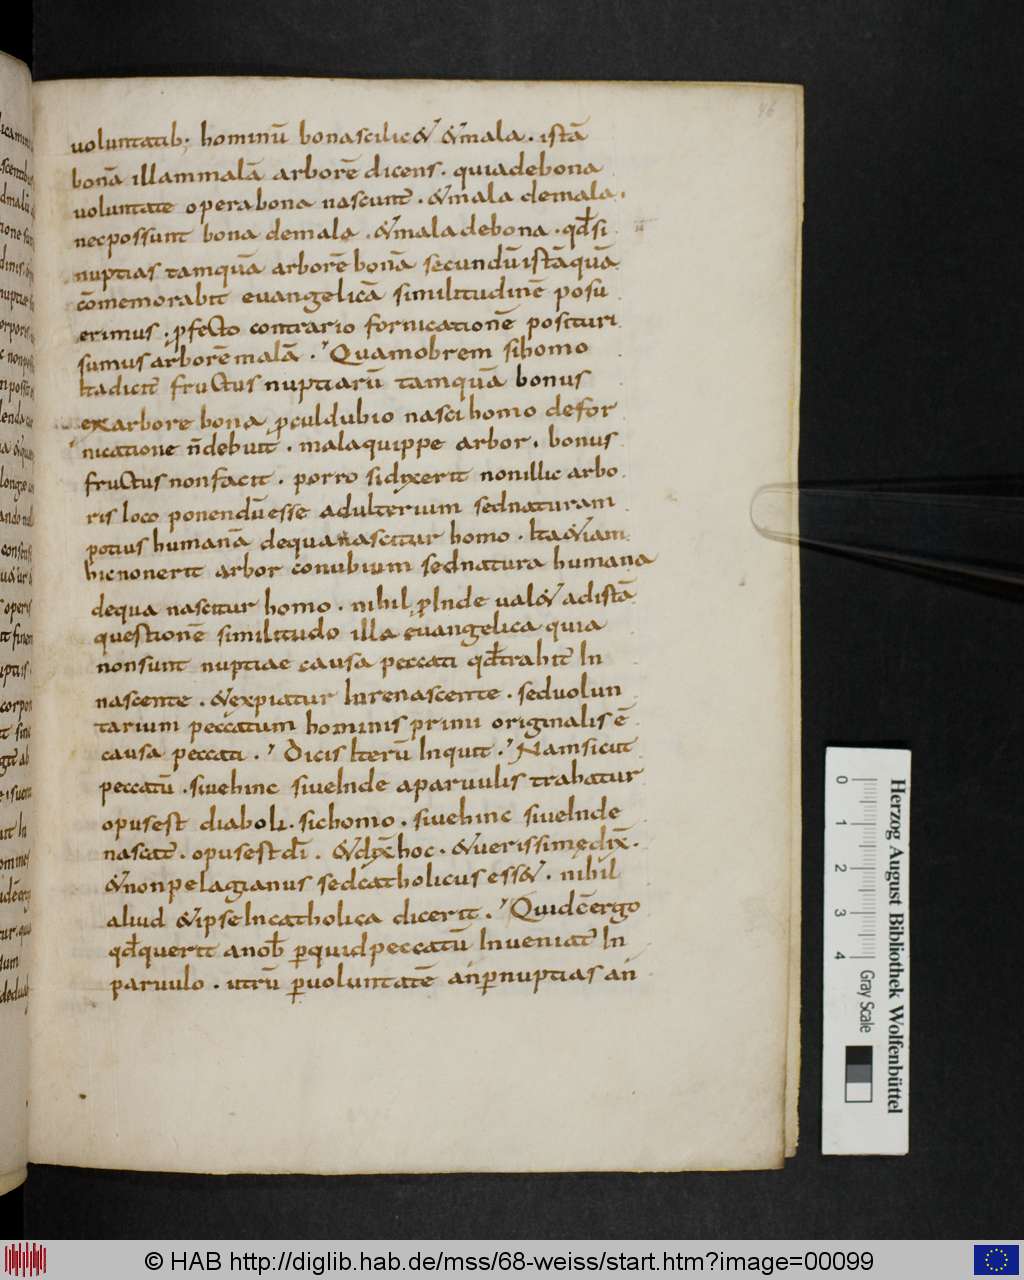 46
uoluntatib; hominū bona scilic& &mala · istā
bonā illam malā arborē dicens · quia debona
uoluntate opera bona nascunt̄ · &mala demala ·
nec possunt bona demala · &mala debona · qđsi
nuptias tamquā arborē bonā secundū istā quā
cōmemorabit euangelicā similitudinē posu
erimus · ꝓfecto contrario fornicationē posituri
sumus arborē malā · Quamobrem si homo
Ita dicit̄ fructus nuptiarū tamquā bonus
ex arbore bona ꝓculdubio nasci homo defor
nicatione n̄ debuit · mala quippe arbor · bonus
fructus non facit · porro si dyxerit non illic arbo
ris loco ponendū esse adulterium sed naturam
potius humanā dequa nascitur homo · Ita &iam
hic non erit arbor conubium sed natura humana
dequa nascitur homo · nihil ꝓInde ual& ad istā
questionē similitudo illa euangelica quia
non sunt nuptiae causa peccati qđ trahit̄ In
nascente · &expiatur In renascente · sed uolun
tarium peccatum hominis primi originalis ē
causa peccati · Dicis Iterū Inquit · Nam sicut
peccatū · siue hinc siue Inde aparuulis trahatur
opus est diaboli · sic homo · siue hinc siue Inde
nascat̄ · opus est dī · &dyx̄ hoc · &uerissime dix̄ ·
&non pelagianus sed catholicus ess& · nihil
aliud &ipse In catholica dicerit · Quid ē ergo
qđ querit anob̄ ꝑquid peccatū Inueniat̄ In
paruulo · utrū ꝑuoluntatē an ꝑnuptias an
Herzog August Bibliothek Wolfenbüttel
0 1 2 3 4
Gray Scale
© HAB http://diglib.hab.de/mss/68-weiss/start.htm?image=00099